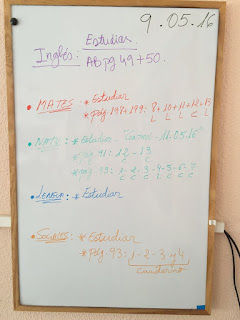 9.05.16
Estudiar
Inglés: AB pg 49+50.
• MATES: * Estudiar
* pág 197+199: 8+10+11+12+13
L C L C L
• NATU: * Estudiar - "Control - 11.05.16"
* pág 91: 12 - 13
C C
* pág 93: 1-2-3-4-5-6-7
• LENGUA: * Estudiar
• SOCIALES: * Estudiar
* Pág. 93: 1-2-3 y 4
cuaderno